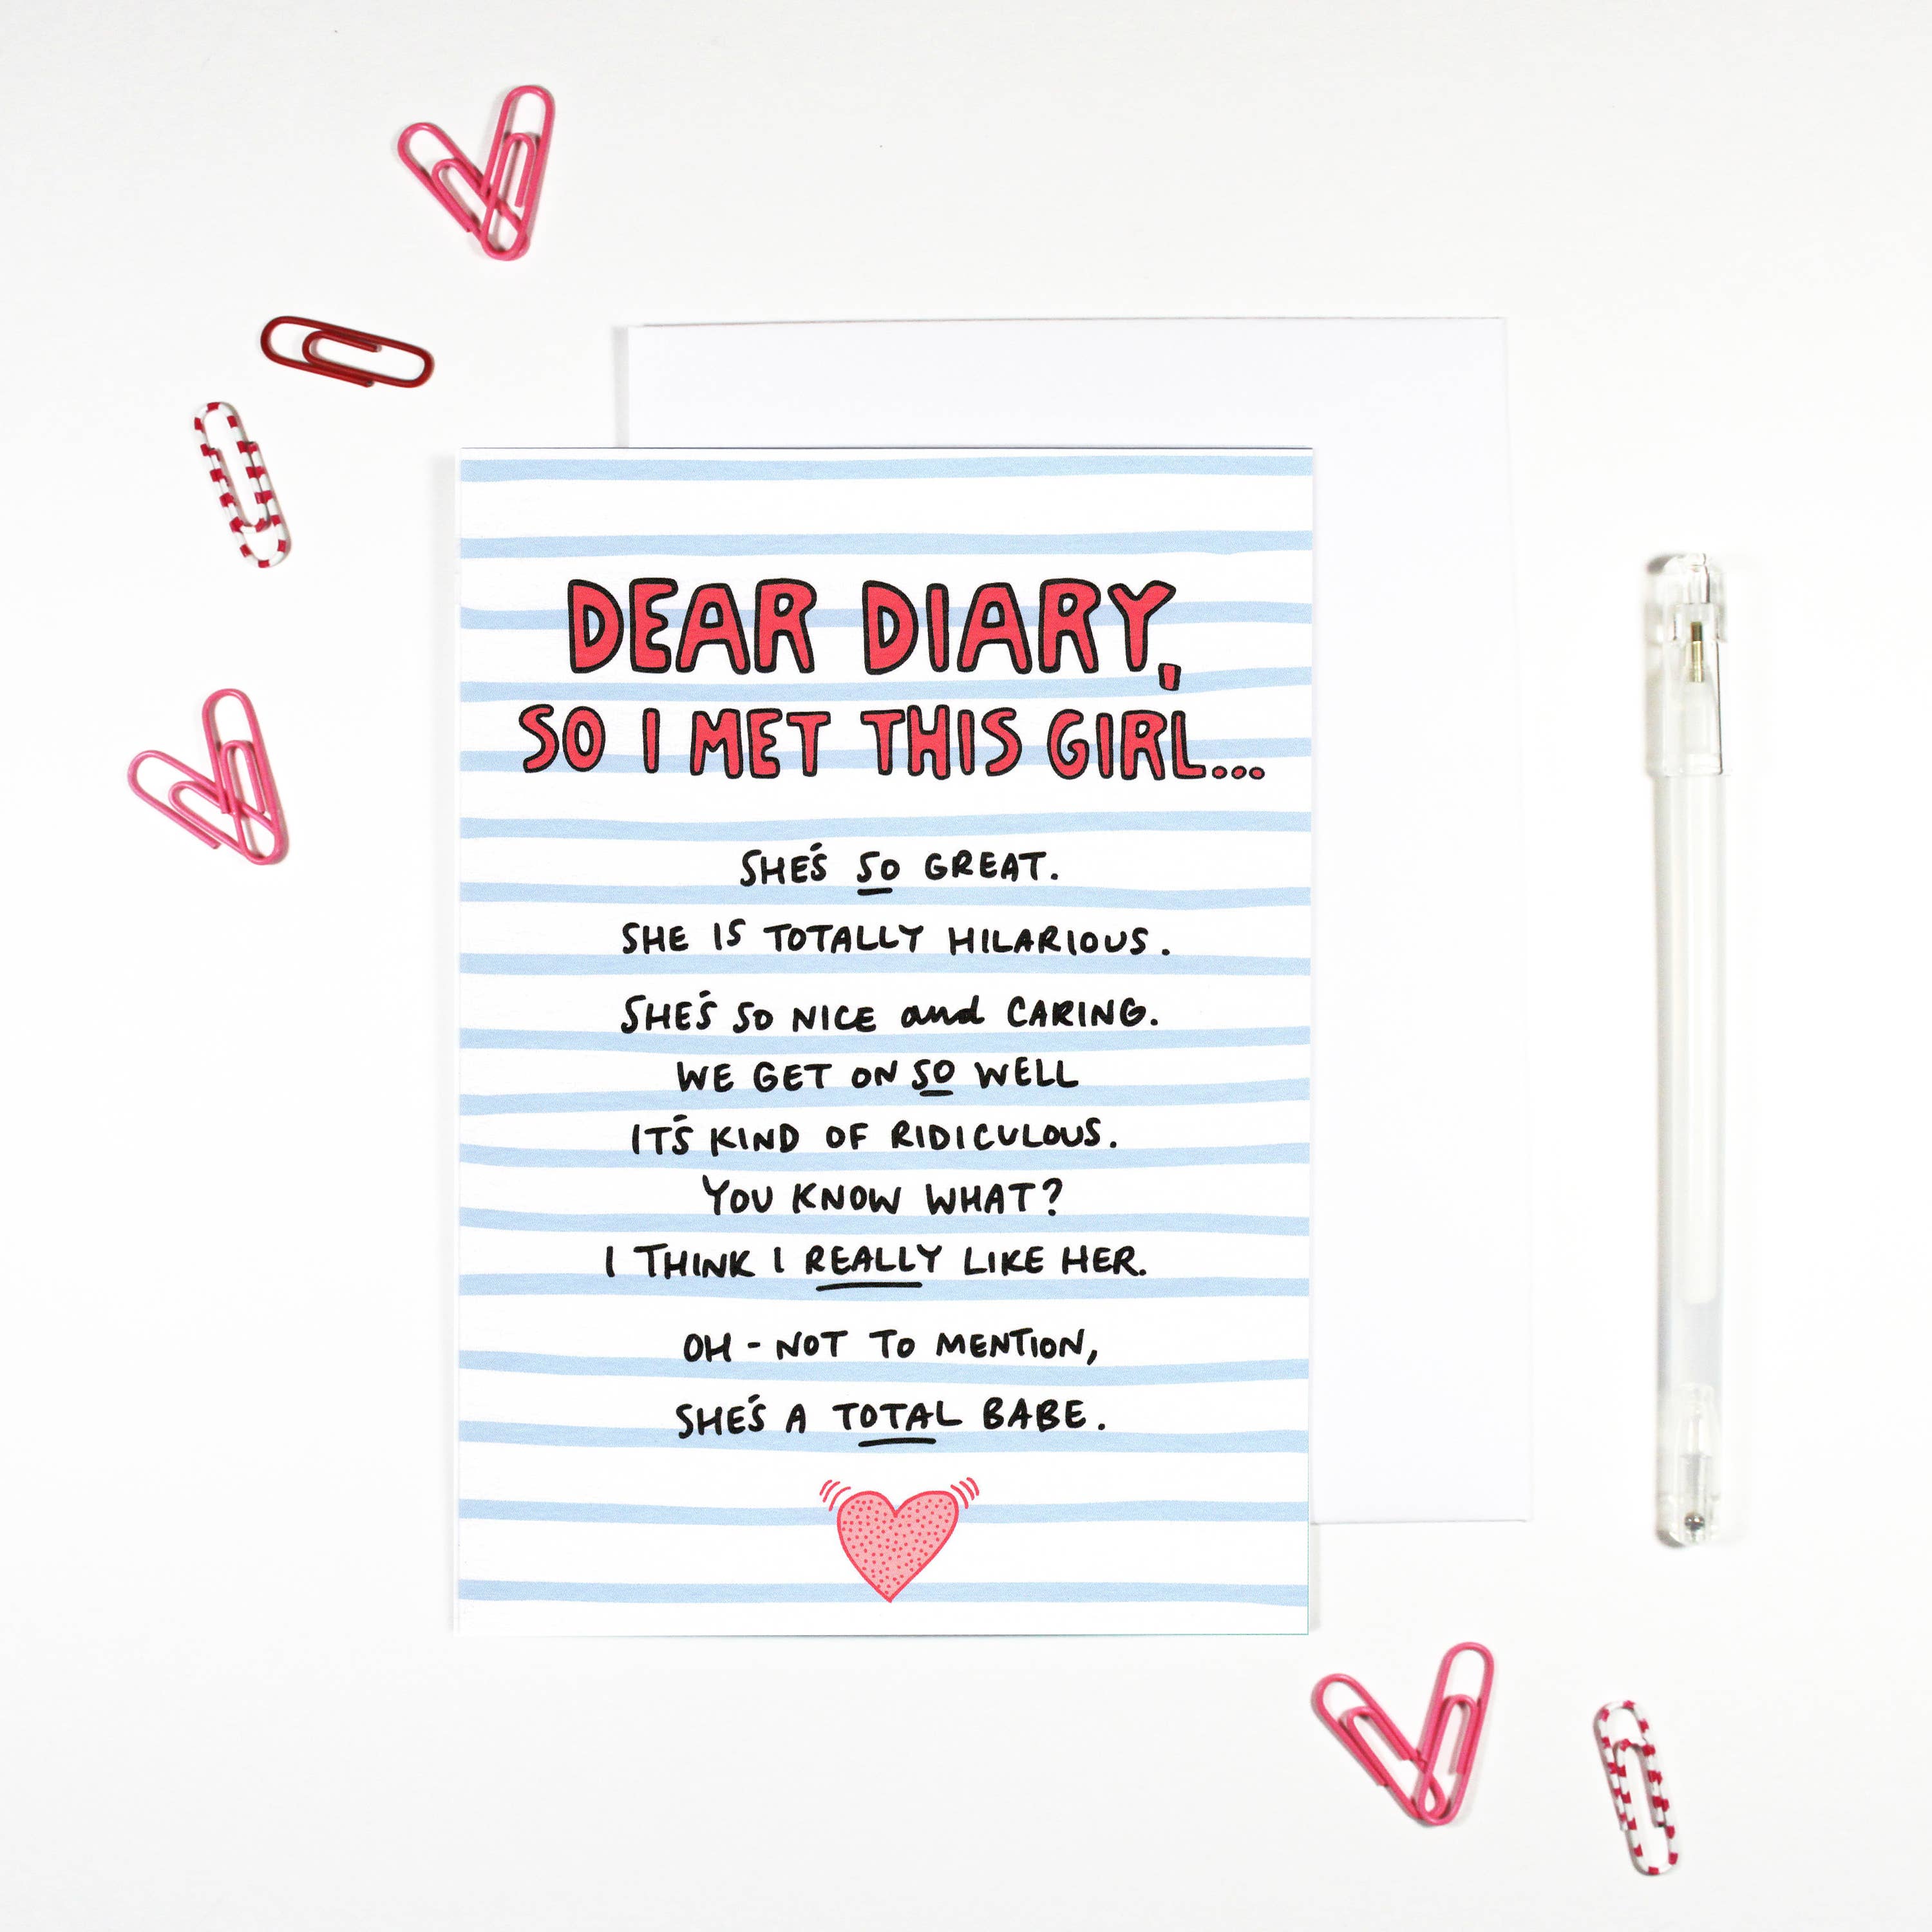 DEAR DIARY,
SO I MET THIS GIRL...
SHE'S SO GREAT.
SHE IS TOTALLY HILARIOUS.
SHE'S SO NICE and CARING.
WE GET ON SO WELL
IT'S KIND OF RIDICULOUS.
YOU KNOW WHAT?
I THINK I REALLY LIKE HER.
OH - NOT TO MENTION,
SHE'S A TOTAL BABE.